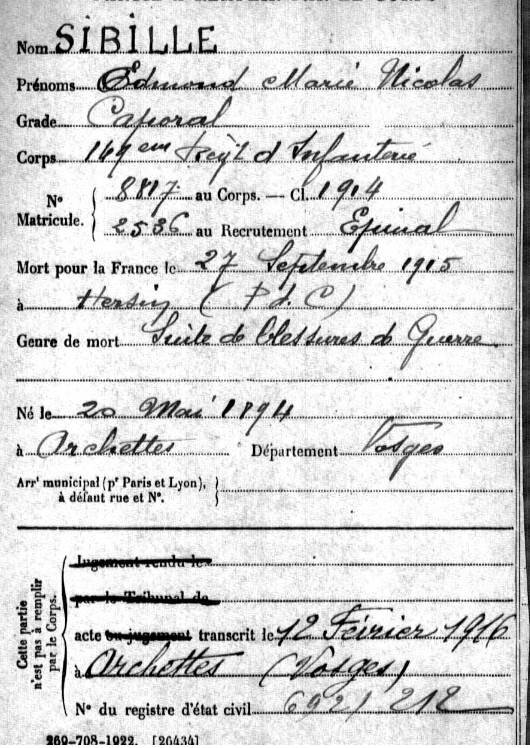 PARTIE À REMPLIR PAR LE CORPS
Nom SIBILLE
Prénoms Edmond Marie Nicolas
Grade Caporal
Corps 149 eme Reg't d Infanterie
N° Matricule. 8817 au Corps. — Cl. 1914
2536 au Recrutement Epinal
Mort pour la France le 27 Septembre 1915
à Hersin ( P d. C )
Genre de mort Suite de blessures de Guerre
Né le 20 Mai 1894
à Archettes Département Vosges
Arrt municipal (pr Paris et Lyon),
à défaut rue et N°.
Cette partie
n'est pas à remplir
par le Corps.
Jugement rendu le
par le Tribunal de
acte ou jugement transcrit le 12 Février 1916
à Archettes (Vosges)
N° du registre d'état civil 692/212
269-708-1922. [26434]